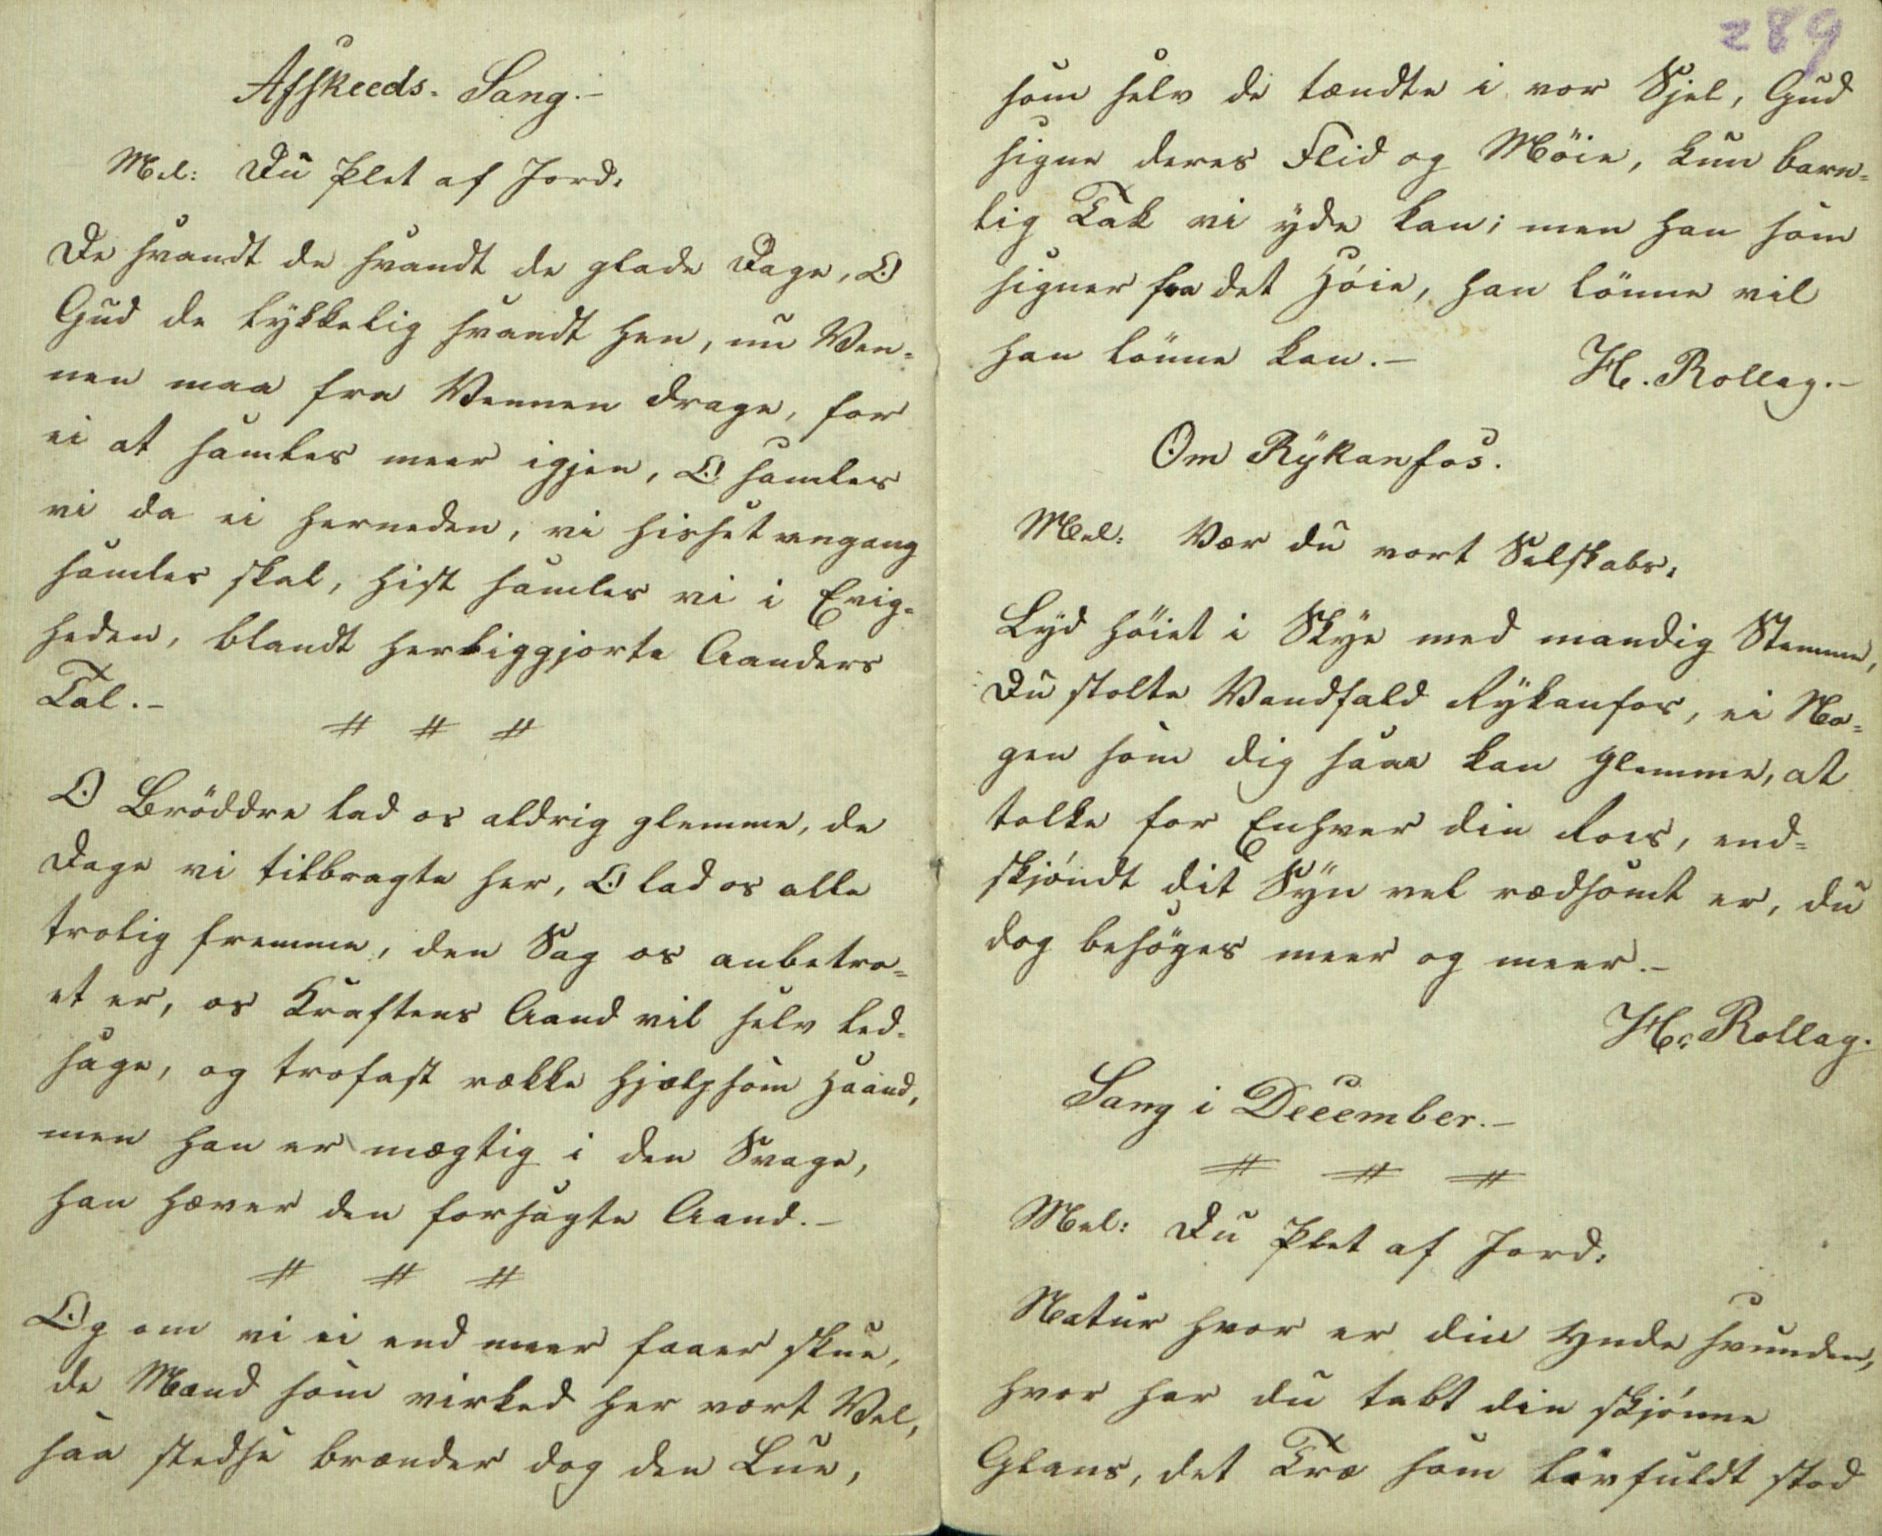 Afskeeds-Sang.-
Mel: Du Plet af Jord:
De svandt de svandt de glade Dage, O
Gud de lykkelig svandt hen, nu Ven-
nen maa fra Vennen drage, for
ei at samles meer igjen, O samles
vi da ei herneden, vi hisset engang
samles skal, hist samles vi i Evig-
heden, blandt herliggjorte Aanders
Tal.-
# # #
O Bröddre lad os aldrig glemme, de
Dage vi tilbragte her, O lad os alle
trolig fremme, den Sag os anbetro-
et er, os Kraftens Aand vil selv led-
sage, og trofast række hjælpsom Haand,
men han er mægtig i den Svage,
han hæver den forsagte Aand.-
# # #
Og om vi ei end meer faaer skue,
de Mænd som virked her vort Vel,
saa stedse brænder dog den Lue,
289
som selv de tændte i vor Sjel, Gud
signe deres Flid og Möie, kun barn-
lig Tak vi yde kan; men han som
signer fra det Höie, han lönne vil
han lönne kan.-
H. Rollag.-
Om Rykanfos.
Mel: Vær du vort Selskabs:
Lyd höiet i Skye med mandig Stemme,
Du stolte Vandfald Rykanfos, ei No-
gen som dig saae kan glemme, at
tolke for Enhver din Roes, end-
skjöndt dit Syn vel rædsomt er, du
dog besöges meer og meer.-
H. Rollag.
Sang i December.-
# # #
Mel: Du Plet af Jord:
Natur hvor er din Ynde svunden,
hvor har du tabt din skjönne
Glans, det Træ som lövfuldt stod